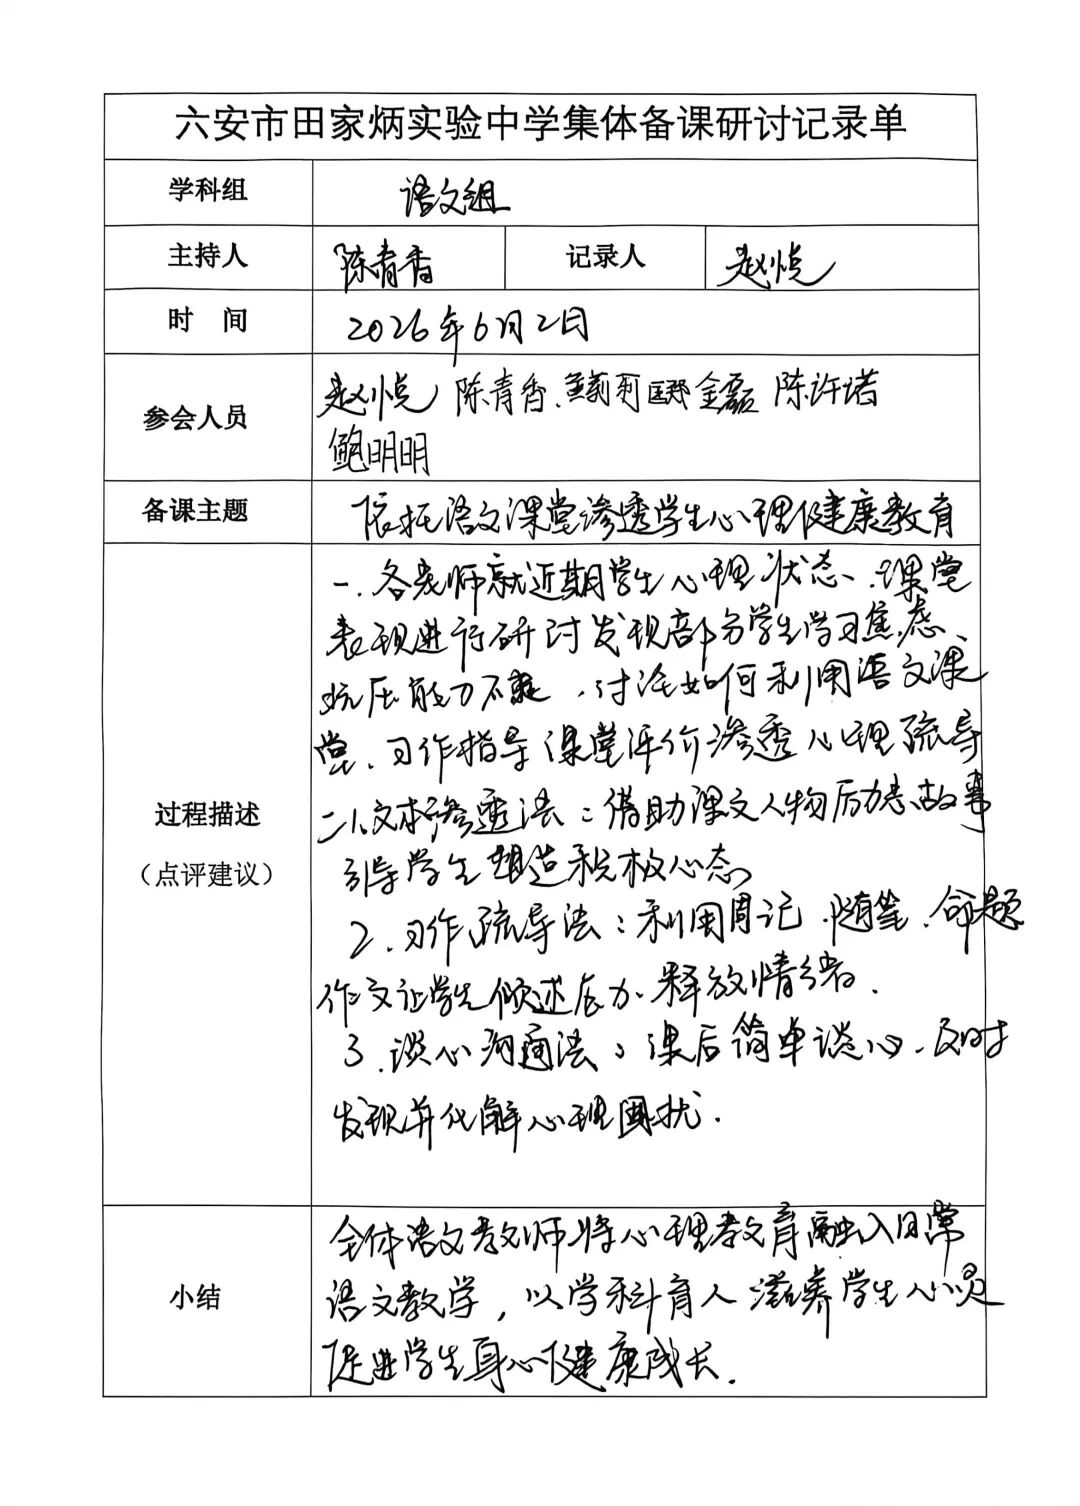 六安市田家炳实验中学集体备课研讨记录单
学科组 语文组
主持人 陈青香 记录人 赵悦
时 间 2026年6月2日
参会人员 赵悦 陈青香. 莉 金磊 陈许诺
鲍明明
备课主题 依托语文课堂渗透学生心理健康教育
过程描述
（点评建议）
一.各老师就近期学生心理状态、课堂
表现进行研讨发现部分学生学习焦虑、
抗压能力不足,讨论如何利用语文课
堂、习作指导课堂评价渗透心理疏导
二1.文本渗透法：借助课文人物励志故事
引导学生塑造积极心态
2.习作疏导法：利用周记.随笔.命题
作文让学生倾述压力、释放情绪.
3.谈心沟通法：课后简单谈心.及时
发现并化解心理困扰.
小结 全体语文教师将心理教育融入日常
语文教学，以学科育人滋养学生心灵
促进学生身心健康成长.